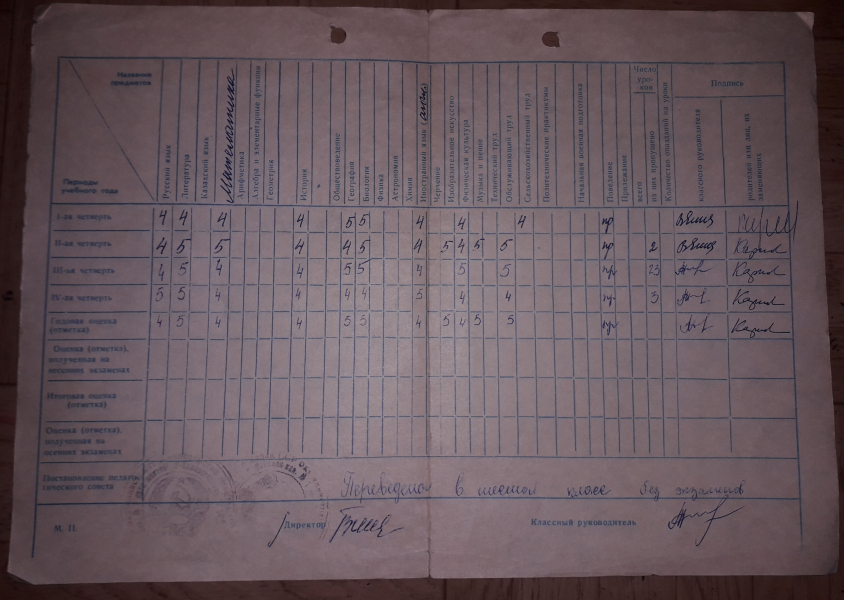 Название предметов
Периоды учебного года
Русский язык
Литература
Казахский язык
Математика
Арифметика
Алгебра и элементарные функции
Геометрия
История
Обществоведение
География
Биология
Физика
Астрономия
Химия
Иностранный язык (англ.)
Черчение
Изобразительное искусство
Физическая культура
Музыка и пение
Технический труд
Обслуживающий труд
Сельскохозяйственный труд
Политехнические практикумы
Начальная военная подготовка
Поведение
Прилежание
Число уроков
всего
из них пропущено
Количество опозданий на уроки
Подпись
классного руководителя
родителей или лиц, их заменяющих
I-ая четверть 4 4 4 4 5 5 4 4 4 пр
II-ая четверть 4 5 5 4 4 5 4 5 4 5 5 пр 2
III-ая четверть 4 5 4 4 5 5 4 5 5 пр 23
IV-ая четверть 5 5 4 4 4 4 5 4 4 пр 3
Годовая оценка (отметка) 4 5 4 4 5 5 4 5 4 5 5 пр
Оценка (отметка), полученная на весенних экзаменах
Итоговая оценка (отметка)
Оценка (отметка), полученная на осенних экзаменах
Постановление педагогического совета
Переведена в шестой класс без экзаменов
М. П.
Директор
Классный руководитель